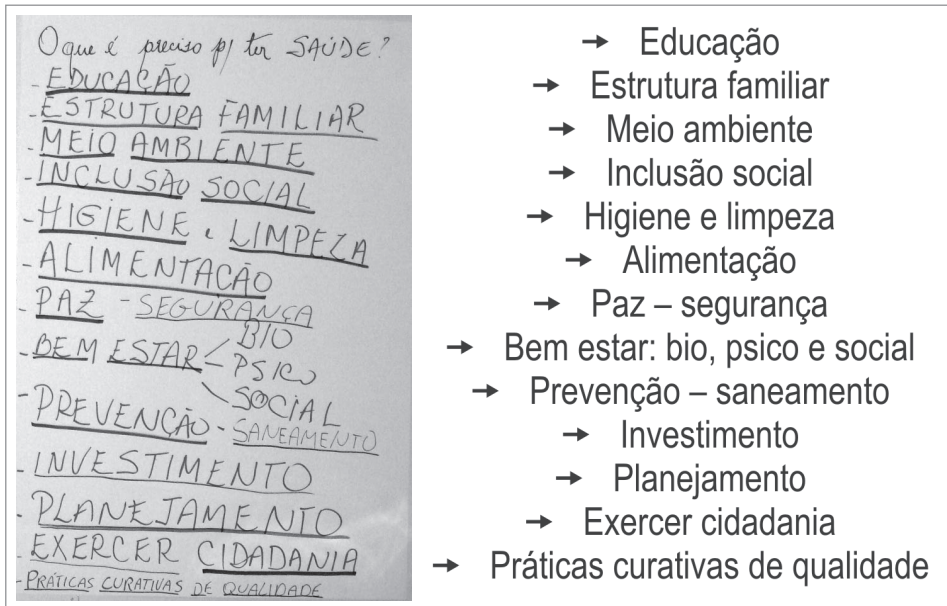 O que é preciso p/ ter SAÚDE?
- EDUCAÇÃO
- ESTRUTURA FAMILIAR
- MEIO AMBIENTE
- INCLUSÃO SOCIAL
- HIGIENE e LIMPEZA
- ALIMENTAÇÃO
- PAZ - SEGURANÇA
- BEM ESTAR BIO
PSICO
SOCIAL
- PREVENÇÃO - SANEAMENTO
- INVESTIMENTO
- PLANEJAMENTO
- EXERCER CIDADANIA
- PRÁTICAS CURATIVAS DE QUALIDADE
→ Educação
→ Estrutura familiar
→ Meio ambiente
→ Inclusão social
→ Higiene e limpeza
→ Alimentação
→ Paz – segurança
→ Bem estar: bio, psico e social
→ Prevenção – saneamento
→ Investimento
→ Planejamento
→ Exercer cidadania
→ Práticas curativas de qualidade